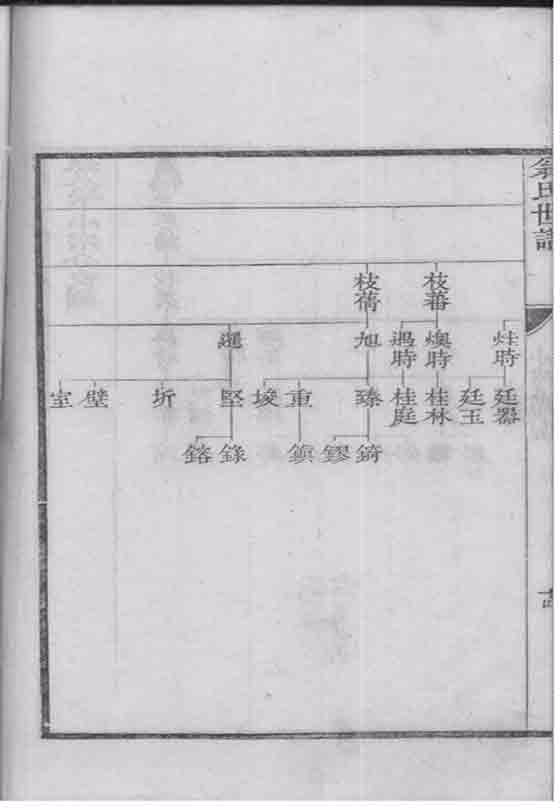 氏世譜
枝蕃
枝蒨
炷時
煥時
遇時
旭
暹
廷器
廷玉
桂林
桂庭
臻
重
埈
堅
圻
壁
室
錡
鏐
鎮
錄
鎔